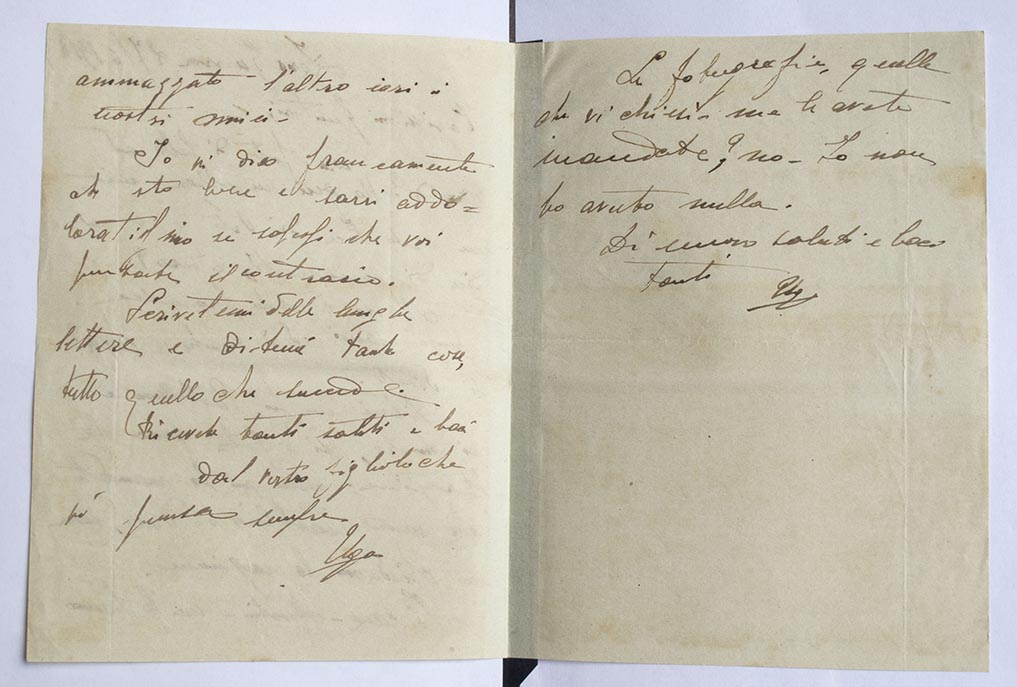 ammazzato l'altro ieri i
nostri amici-
Io vi dico francamente
che sto bene e sarei addo=
loratissimo se sapessi che voi
pensate il contrario.
Scrivetemi delle lunghe
lettere e ditemi tante cose,
tutto quello che succede.
Ricevete tanti saluti e baci
dal vostro figliolo che
vi pensa sempre
Ugo
Le fotografie, quelle
che vi chiesi- me le avete
mandate? no- Io non
ho avuto nulla.
Di nuovo saluti e baci
tanti
Ugo